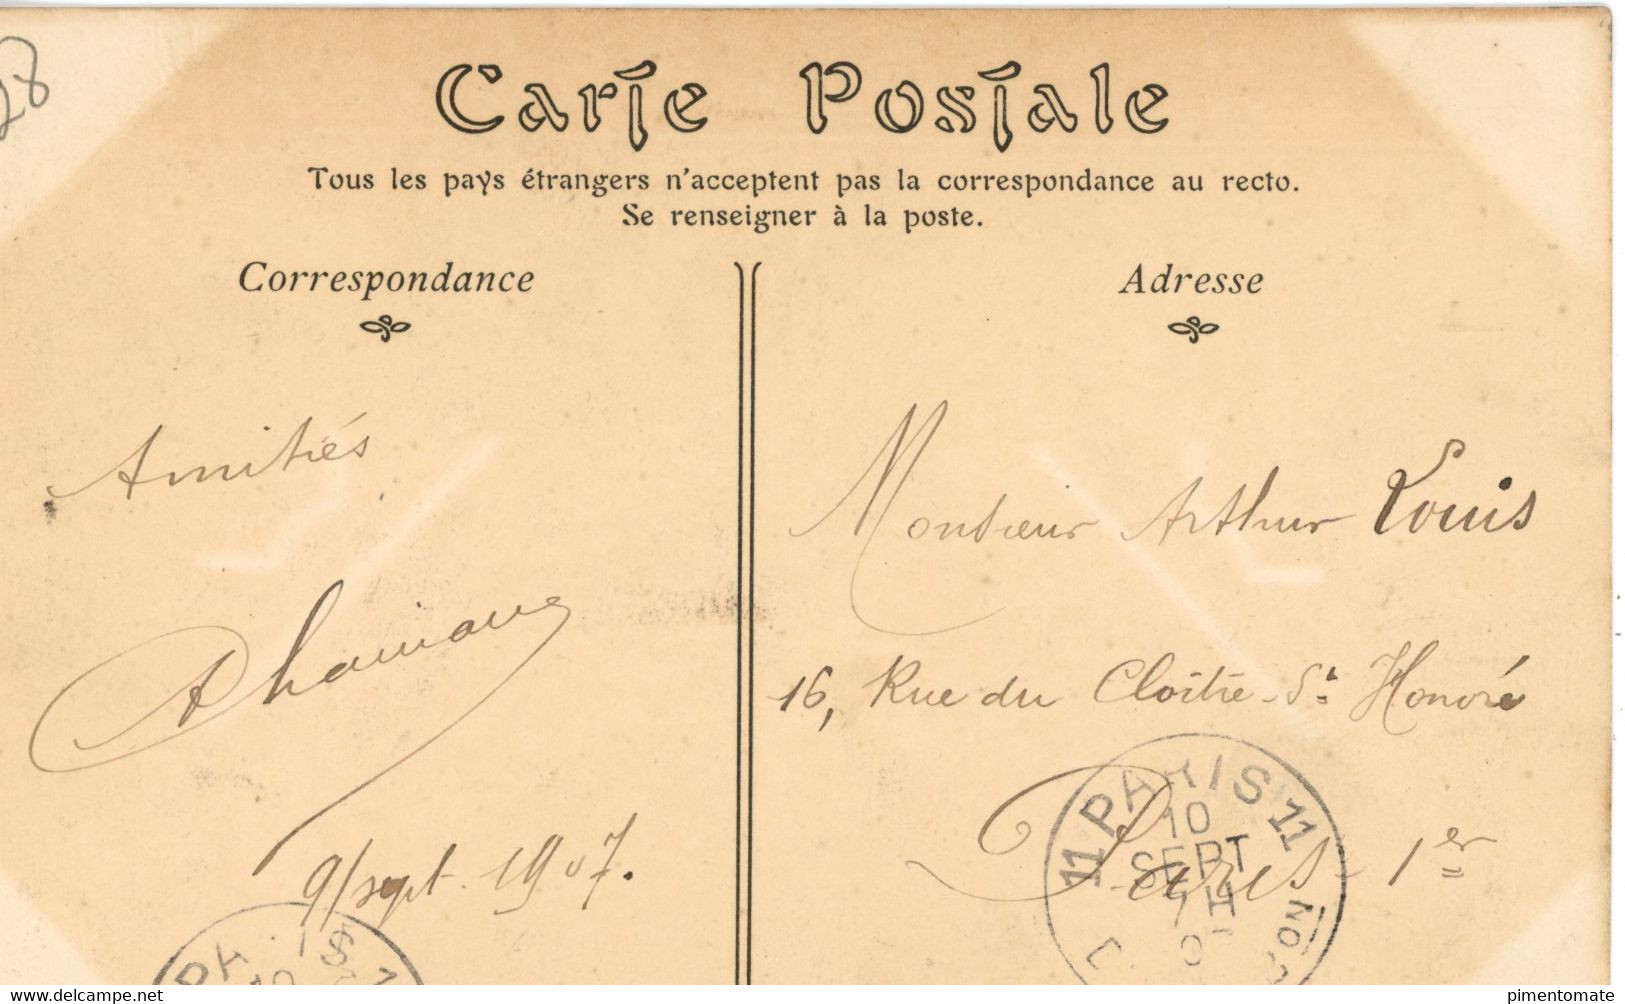 28
Carte Postale
Tous les pays étrangers n'acceptent pas la correspondance au recto.
Se renseigner à la poste.
Correspondance
Amitiés
9/sept. 1907.
Adresse
Monsieur Arthur Louis
16, Rue du Cloître-St Honoré
Paris - 1er
11 PARIS 11
10
SEPT
PARIS
10
www.delcampe.net
pimentomate